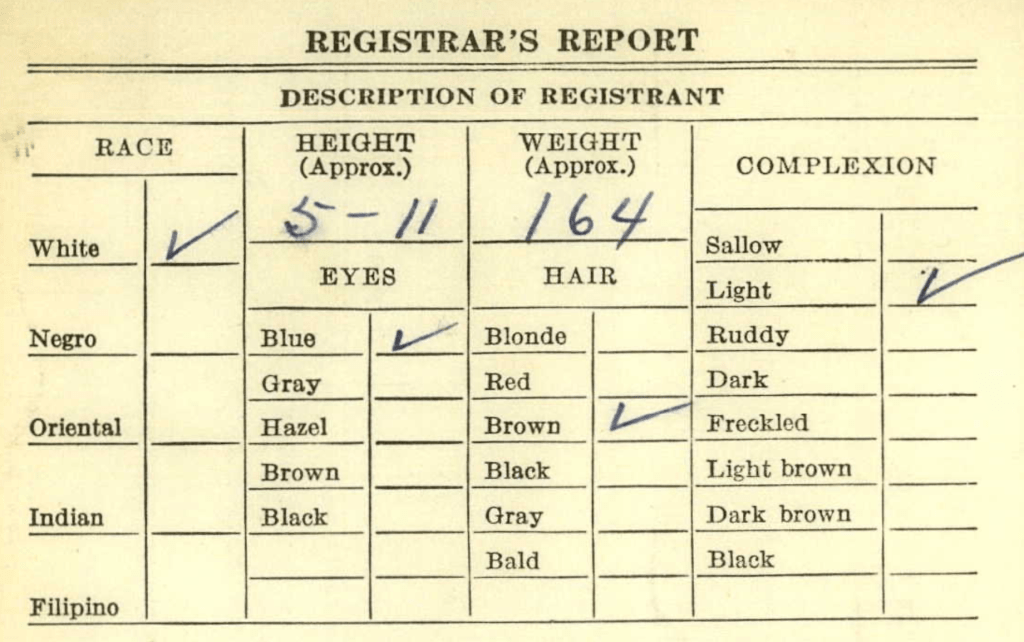 REGISTRAR'S REPORT
DESCRIPTION OF REGISTRANT
RACE
White ✓
Negro
Oriental
Indian
Filipino
HEIGHT
(Approx.)
5-11
EYES
Blue ✓
Gray
Hazel
Brown
Black
WEIGHT
(Approx.)
164
HAIR
Blonde
Red
Brown ✓
Black
Gray
Bald
COMPLEXION
Sallow
Light ✓
Ruddy
Dark
Freckled
Light brown
Dark brown
Black